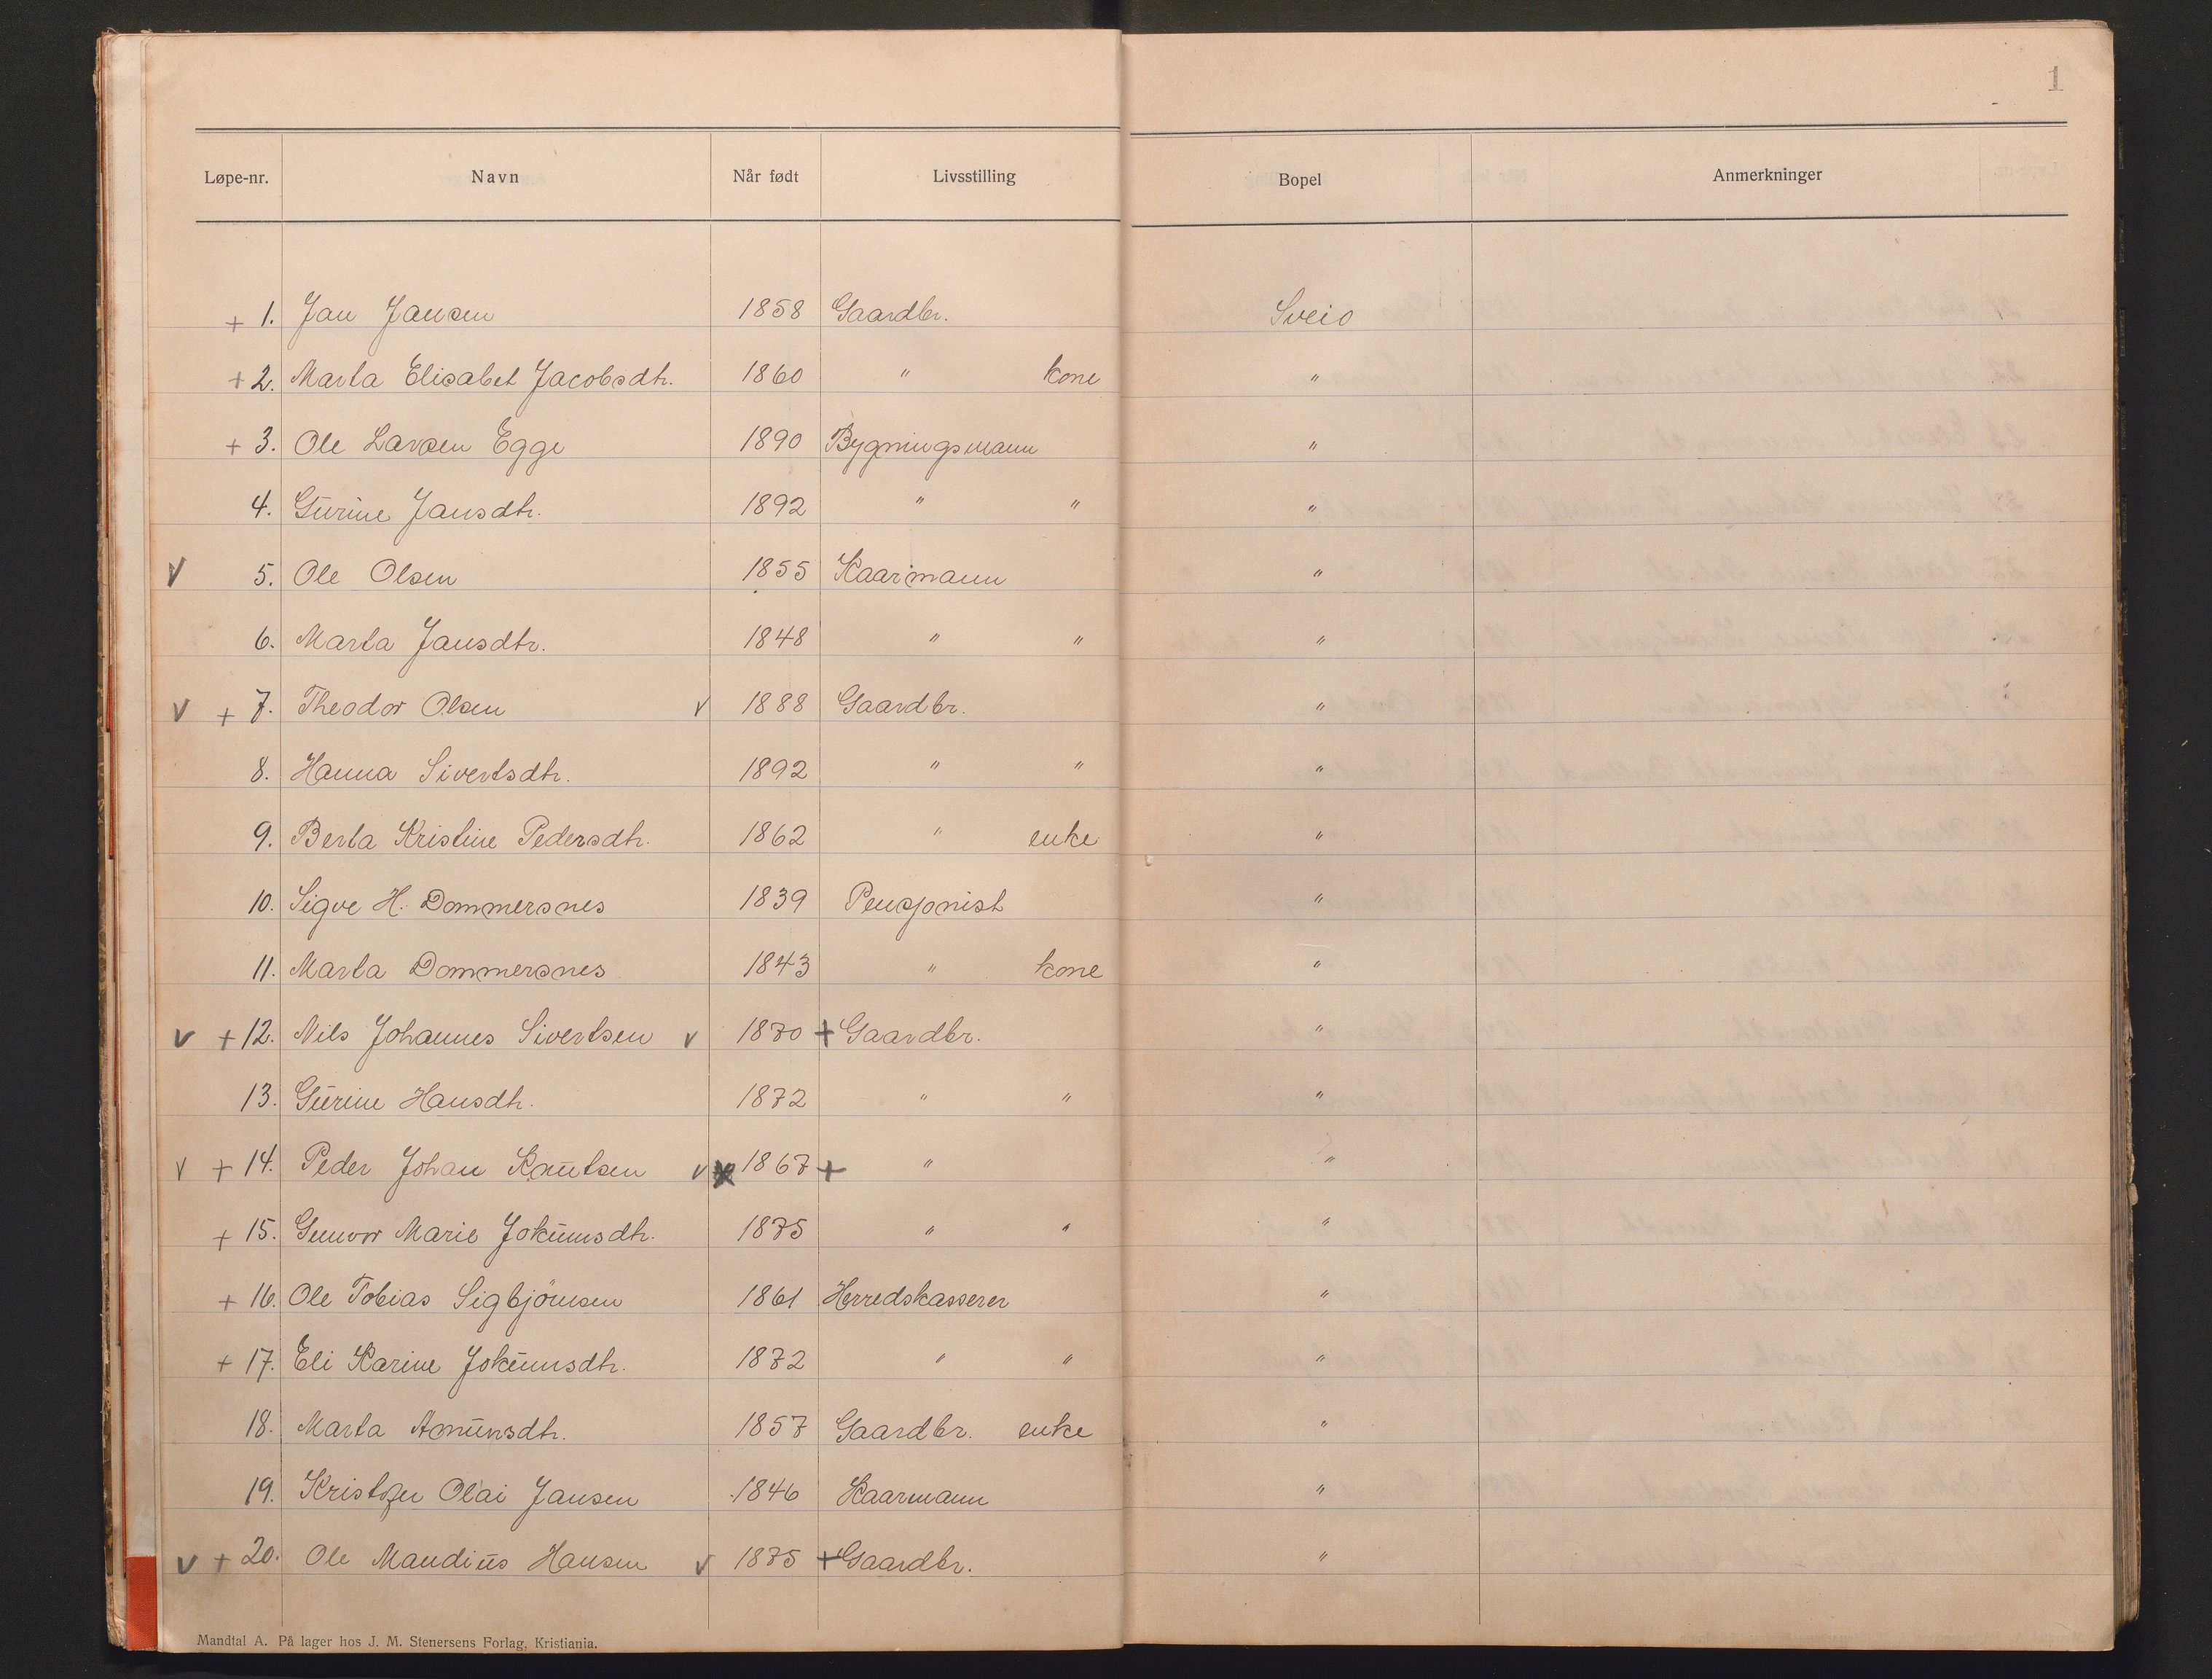 1
Løpe-nr. Navn Når født Livsstilling Bopel Anmerkninger
+ 1. Jan Jansen 1858 Gaardbr. Sveio
+ 2. Marta Elisabet Jacobsdtr. 1860 " kone "
+ 3. Ole Larsen Egge 1890 Bygningsmann "
4. Gurine Jansdtr. 1892 " " "
V 5. Ole Olsen 1855 Kaarmann "
6. Marta Jansdtr. 1848 " " "
V + 7. Theodor Olsen V 1888 Gaardbr. "
8. Hanna Sivertsdtr. 1892 " " "
9. Berta Kristine Pedersdtr. 1862 " enke "
10. Sigve H. Dommersnes 1839 Pensjonist "
11. Marta Dommersnes 1843 " kone "
V + 12. Nils Johannes Sivertsen V 1870 + Gaardbr. "
13. Gurine Hansdtr. 1872 " " "
V + 14. Peder Johan Knutsen V x 1867 + " "
+ 15. Gunvor Marie Jokumsdtr. 1875 " " "
+ 16. Ole Tobias Sigbjörnsen 1861 Herredskasserer "
+ 17. Eli Karine Jokumsdtr. 1872 " " "
18. Marta Amunsdtr. 1857 Gaardbr. enke "
19. Kristofer Olai Jansen 1846 Kaarmann "
V + 20. Ole Mandius Hansen V 1875 + Gaardbr. "
Mandtal A. På lager hos J. M. Stenersens Forlag, Kristiania.